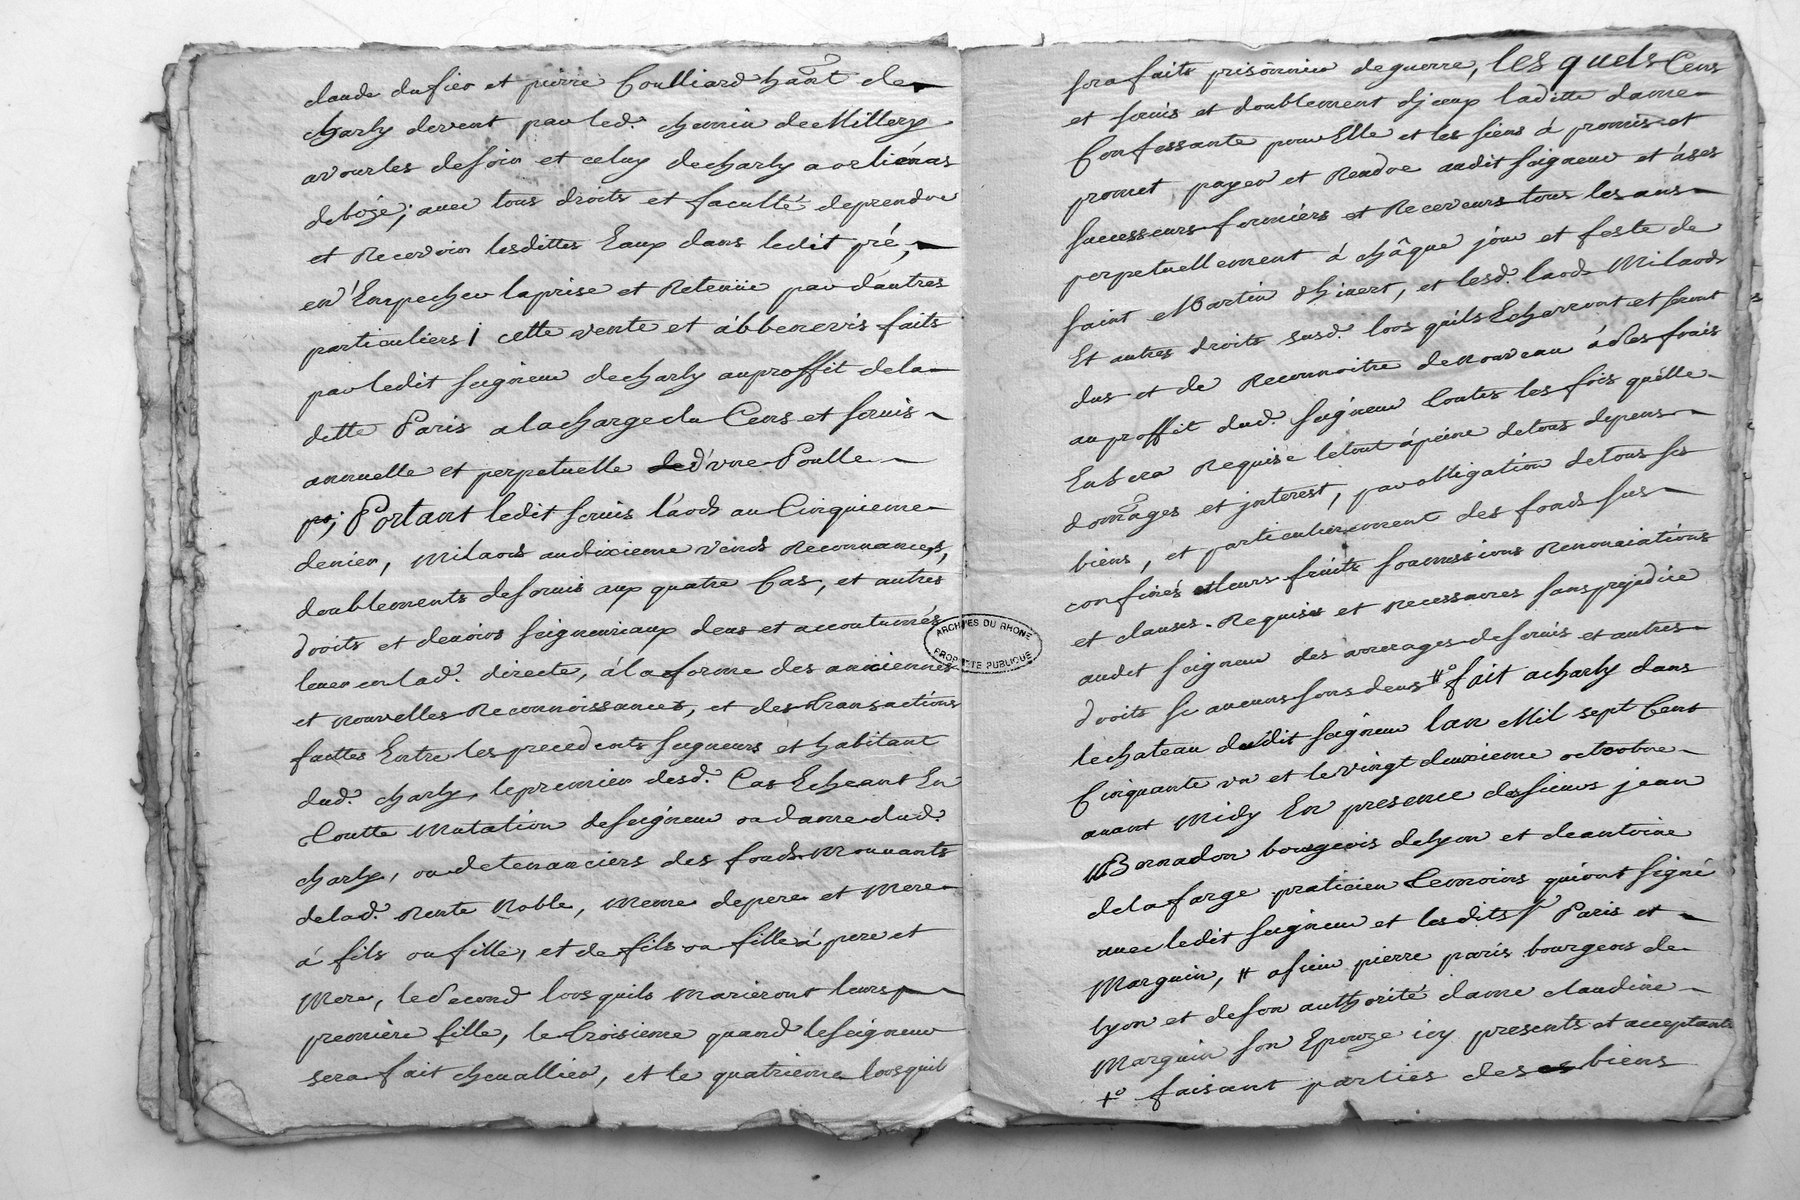 claude dufier et pierre Coulliard hānt de
charly devent par led. chemin de Millery
avourles desoin et celuy de charly a orliénas
deboje; avec tous droits et faculté de prendre
et Recevoir lesdittes Eaux dans ledit pré,
en Empecher la prise et Retenüe par d'autres
particuliers; cette vente et abbenevis faits
par ledit seigneur de charly au proffit de la
ditte Paris a la charge du Cens et servis
annuelle et perpetuelle d'une Poulle
Portant ledit servis laods au Cinquieme
denier, Milaods au dixieme vends Reconnances,
doublements de servis aux quatre Cas, et autres
droits et devoirs seigneuriaux deus et accoutumés
lever en lad. directe, á la forme des anciennes
et nouvelles Reconnoissances, et des transactions
faittes Entre les precedents seigneurs et habitant
dud. charly, le premier desd. Cas Echeant En
toutte Mutation de seigneur ou dame dud.
charly, ou de tenanciers des fonds mouvants
de lad. Rente Noble, meme de pere et mere
á fils ou fille, et de fils ou fille á pere et
Mere, le second lorsquils marieront leurs
premiére fille, le troisieme quand le seigneur
sera fait chevallier, et le quatrieme lorsquil
sera faits prisonnier de guerre, les quels Cens
et servis et doublement d'jceux laditte dame
Confessante pour Elle et les siens á promis et
promet payer et Rendre audit seigneur et á ses
successeurs fermiérs et Receveurs tous les ans
perpetuellement á châque jour et feste de
saint Martin d'hivert, et lesd. laods Milaods
Et autres droits susd. lors quils Echerront et seront
dus et de Reconnoitre de nouveau á ses frais
au proffit dud. seigneur toutes les fois quélle
En sera Requise le tout á peine de tous depens
domāges et jnterest, par obligation de tous ses
biens, et particulierement des fonds sus
confinés et leurs fruits soumissions Renonciations
et clauses Requises et necessaires sans prejudice
audit seigneur des arrerages de servis et autres
droits si aucuns sons deus # fait a charly dans
le chateau dudit seigneur lan Mil sept Cent
Cinquante un et le vingt deuxieme octobre
avant Midy En presence de sieurs jean
Bonnadon bourgeois de lyon et de antoine
delafarge praticien temoins qui ont signé
avec ledit seigneur et lesdits Sr Paris et
Marguin, # a sieur pierre paris bourgeois de
lyon et de son authorité dame claudine
Marguin son Epouze icy presents et acceptants
+° faisant parties des biens
ARCHIVES DU RHONE
PROPRIETE PUBLIQUE